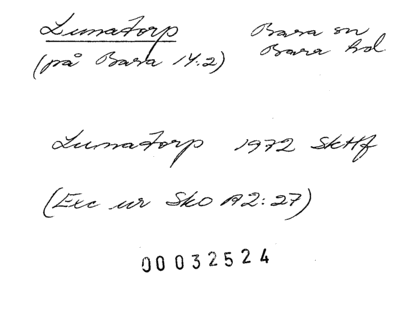 Lumatorp
Bara sn
(på Bara 14:2)
Bara hd
Lumatorp 1972 SkHf
(Exc ur SkO A2:27)
00032524